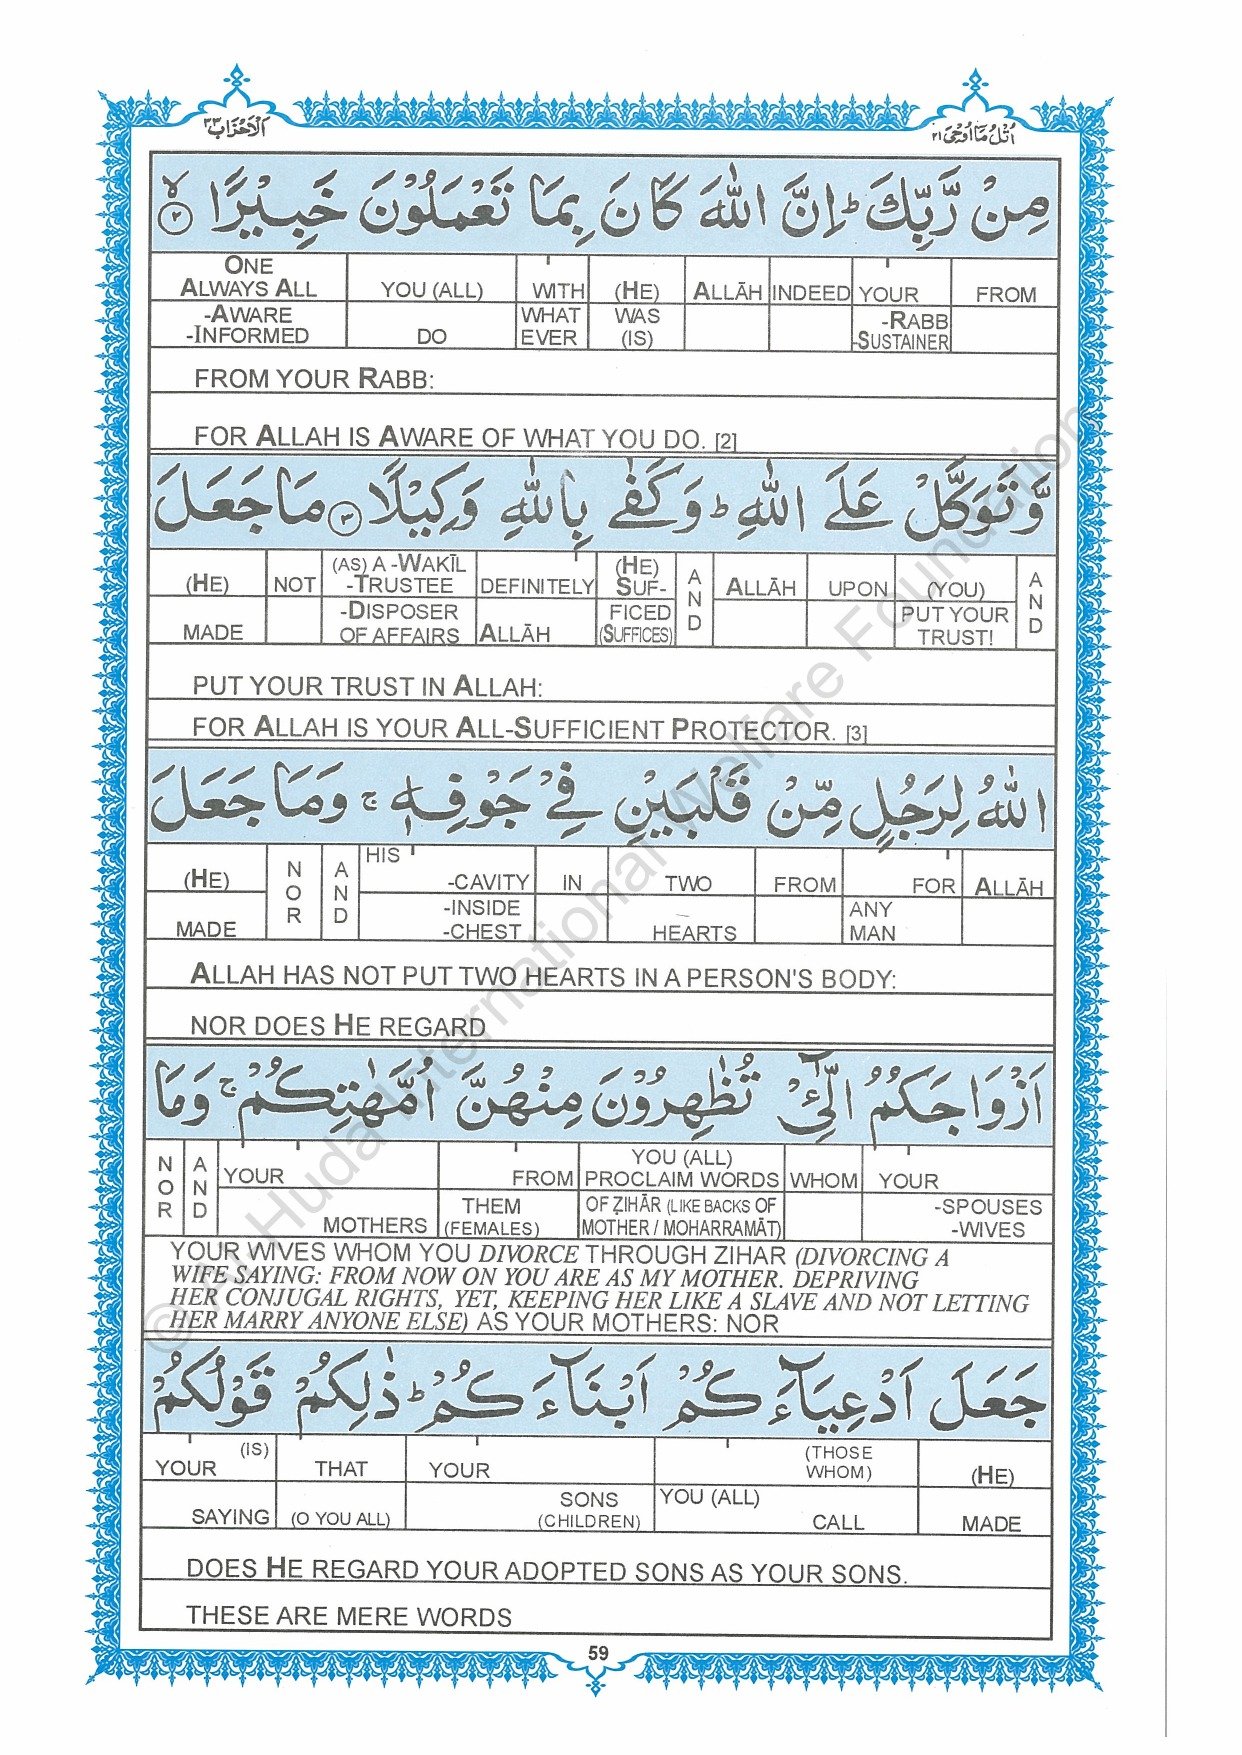 الاحزاب ٣٣
اتل ما اوحی ٢١
مِنْ رَّبِّكَ ؕ اِنَّ اللّٰهَ كَانَ بِمَا تَعْمَلُوْنَ خَبِيْرًا ۙ ﴿٢﴾
ONE ALWAYS ALL YOU (ALL) WITH (HE) ALLĀH INDEED YOUR FROM
-AWARE WHAT WAS -RABB
-INFORMED DO EVER (IS) -SUSTAINER
FROM YOUR RABB:
FOR ALLAH IS AWARE OF WHAT YOU DO. [2]
وَّتَوَكَّلْ عَلَى اللّٰهِ ؕ وَكَفٰى بِاللّٰهِ وَكِيْلًا ﴿٣﴾ مَا جَعَلَ
(HE) NOT (AS) A -WAKĪL -TRUSTEE DEFINITELY (HE) SUF- AND ALLĀH UPON (YOU) AND
MADE -DISPOSER OF AFFAIRS ALLĀH FICED (SUFFICES) PUT YOUR TRUST!
PUT YOUR TRUST IN ALLAH:
FOR ALLAH IS YOUR ALL-SUFFICIENT PROTECTOR. [3]
اللّٰهُ لِرَجُلٍ مِّنْ قَلْبَيْنِ فِيْ جَوْفِهٖ ۚ وَمَا جَعَلَ
(HE) NOR AND HIS -CAVITY IN TWO FROM FOR ALLĀH
MADE -INSIDE -CHEST HEARTS ANY MAN
ALLAH HAS NOT PUT TWO HEARTS IN A PERSON'S BODY:
NOR DOES HE REGARD
اَزْوَاجَكُمُ الّٰٓـِٔيْ تُظٰهِرُوْنَ مِنْهُنَّ اُمَّهٰتِكُمْ ۚ وَمَا
NOR AND YOUR FROM YOU (ALL) PROCLAIM WORDS WHOM YOUR
MOTHERS THEM (FEMALES) OF ẒIHĀR (LIKE BACKS OF MOTHER / MOHARRAMĀT) -SPOUSES -WIVES
YOUR WIVES WHOM YOU DIVORCE THROUGH ZIHAR (DIVORCING A
WIFE SAYING: FROM NOW ON YOU ARE AS MY MOTHER. DEPRIVING
HER CONJUGAL RIGHTS, YET, KEEPING HER LIKE A SLAVE AND NOT LETTING
HER MARRY ANYONE ELSE) AS YOUR MOTHERS: NOR
جَعَلَ اَدْعِيَآءَكُمْ اَبْنَآءَكُمْ ؕ ذٰلِكُمْ قَوْلُكُمْ
(IS) YOUR THAT YOUR (THOSE WHOM) (HE)
SAYING (O YOU ALL) SONS (CHILDREN) YOU (ALL) CALL MADE
DOES HE REGARD YOUR ADOPTED SONS AS YOUR SONS.
THESE ARE MERE WORDS
59
© Al Huda International Welfare Foundation